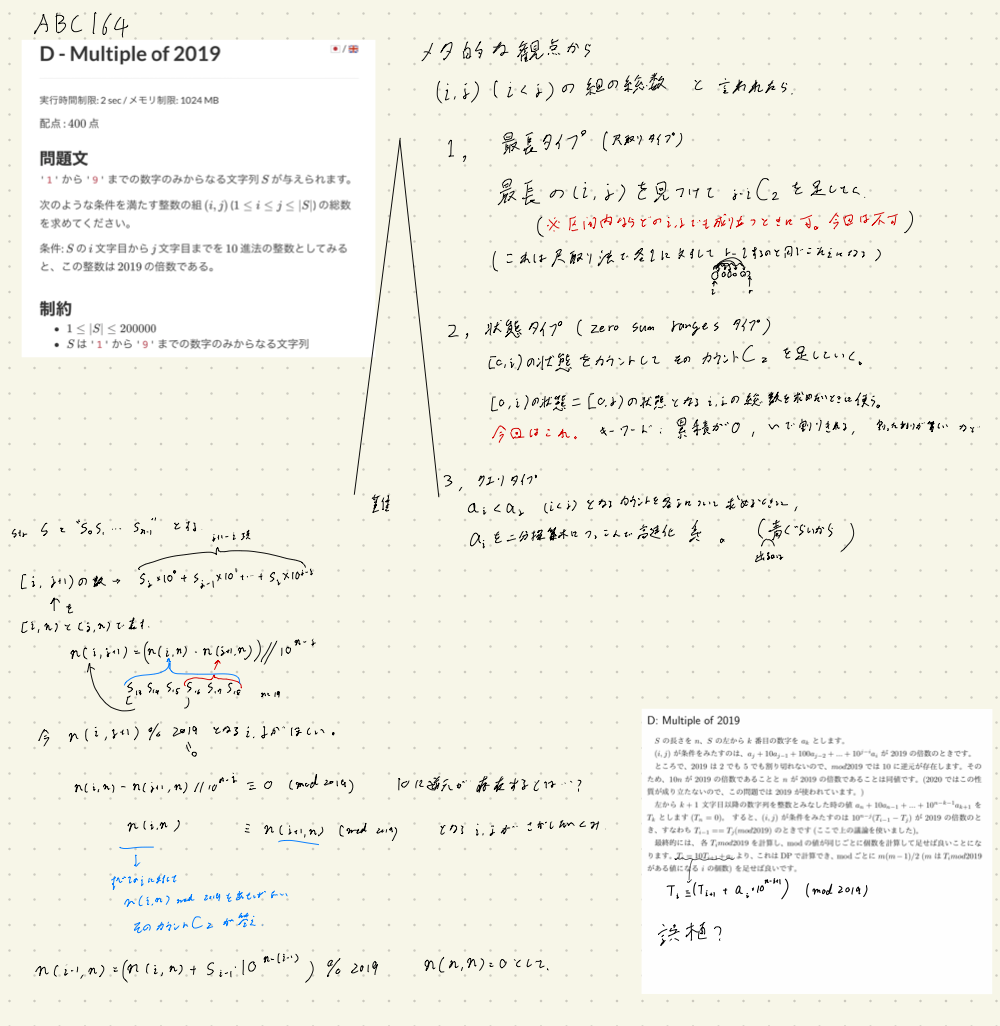 ABC164
D - Multiple of 2019
実行時間制限: 2 sec / メモリ制限: 1024 MB
配点 : 400 点
問題文
'1' から '9' までの数字のみからなる文字列 S が与えられます。
次のような条件を満たす整数の組 (i, j) (1 ≤ i ≤ j ≤ |S|) の総数
を求めてください。
条件: S の i 文字目から j 文字目までを 10 進法の整数としてみる
と、この整数は 2019 の倍数である。
制約
• 1 ≤ |S| ≤ 200000
• S は '1' から '9' までの数字のみからなる文字列
メタ的な観点から
(i, j) (i < j) の組の総数 と言われたら.
1, 最長タイプ (尺取りタイプ)
最長の (i, j) を見つけて j-iC2 を足してく
(※ 区間内ならどの i, j でも成り立つときに可。今回は不可)
2, 状態タイプ (zero sum ranges タイプ)
[0, i) の状態をカウントして そのカウントC2 を足していく。
[0, i) の状態 = [0, j) の状態となる i, j の総数を求めたいときに使う。
今回はこれ。 キーワード: 累積が0,
3, クエリタイプ
ai < aj (i < j) となるカウントを各iについて求めるときに,
ai を二分探索木につっこんで高速化 系。 (青ぐらいから)
S を "S0S1 ... Sn-1" とする
[i, j+1) の数 → Sj×10^0 + Sj-1×10^1 + ... + Si×10^j-i
↑を
[i, n) と [j, n) で表す.
n(i, j+1) = (n(i, n) - n(j+1, n)) // 10^n-j
S13 S14 S15 S16 S17 S18 n=19
今 n(i, j+1) % 2019 となる i, j がほしい。
n(i, n) - n(j+1, n) // 10^n-j ≡ 0 (mod 2019) 10に逆元が存在するとは…?
n(i, n) ≡ n(j+1, n) (mod 2019) となる i, j がさがしたい
↓
すべての i に対して
n(i, n) mod 2019 を
そのカウントC2 が答え.
n(i-1, n) = (n(i, n) + Si-1・10^n-(i-1)) % 2019 n(n, n) = 0 として.
D: Multiple of 2019
S の長さを n、S の左から k 番目の数字を ak とします。
(i, j) が条件をみたすのは、aj + 10aj−1 + 100aj−2 + ... + 10^j−i ai が 2019 の倍数のときです。
ところで、2019 は 2 でも 5 でも割り切れないので、mod2019 では 10 に逆元が存在します。そ
のため、10n が 2019 の倍数であることと n が 2019 の倍数であることは同値です。(2020 ではこの性
質が成り立たないので、この問題では 2019 が使われています。)
左から k + 1 文字目以降の数字列を整数とみなした時の値 an + 10an−1 + ... + 10^n−k−1 ak+1 を
Tk とします (Tn = 0)。 すると、(i, j) が条件をみたすのは 10^n−j(Ti−1 − Tj) が 2019 の倍数のと
き、すなわち Ti−1 == Tj(mod2019) のときです (ここで上の議論を使いました)。
最終的には、各 Ti mod2019 を計算し、mod の値が同じごとに個数を計算して足せば良いことにな
ります。 より、これは DP で計算でき、mod ごとに m(m − 1)/2 (m は Ti mod2019
がある値になる i の個数) を足せば良いです。
Ti ≡ (Ti+1 + ai・10^n-i+1) (mod 2019)
誤植?